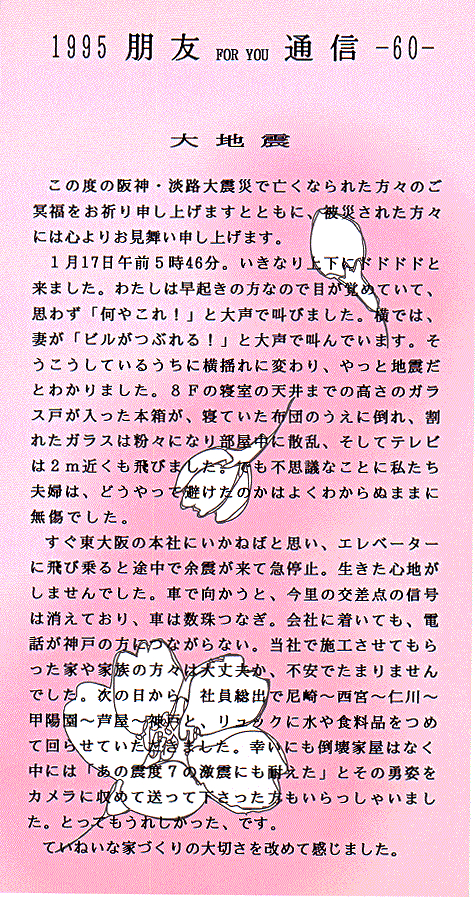 1995 朋友 FOR YOU 通信 -60-
大地震
この度の阪神・淡路大震災で亡くなられた方々のご
冥福をお祈り申し上げますとともに、被災された方々
には心よりお見舞い申し上げます。
1月17日午前5時46分。いきなり上下にドドドドと
来ました。わたしは早起きの方なので目が覚めていて、
思わず「何やこれ!」と大声で叫びました。横では、
妻が「ビルがつぶれる!」と大声で叫んでいます。そ
うこうしているうちに横揺れに変わり、やっと地震だ
とわかりました。8Fの寝室の天井までの高さのガラ
ス戸が入った本箱が、寝ていた布団のうえに倒れ、割
れたガラスは粉々になり部屋中に散乱、そしてテレビ
は2m近くも飛びました。でも不思議なことに私たち
夫婦は、どうやって避けたのかはよくわからぬままに
無傷でした。
すぐ東大阪の本社にいかねばと思い、エレベーター
に飛び乗ると途中で余震が来て急停止。生きた心地が
しませんでした。車で向かうと、今里の交差点の信号
は消えており、車は数珠つなぎ。会社に着いても、電
話が神戸の方につながらない。当社で施工させてもら
った家や家族の方々は大丈夫か、不安でたまりません
でした。次の日から、社員総出で尼崎～西宮～仁川～
甲陽園～芦屋～神戸と、リュックに水や食料品をつめ
て回らせていただきました。幸いにも倒壊家屋はなく
中には「あの震度7の激震にも耐えた」とその勇姿を
カメラに収めて送って下さった方もいらっしゃいまし
た。とってもうれしかった、です。
ていねいな家づくりの大切さを改めて感じました。